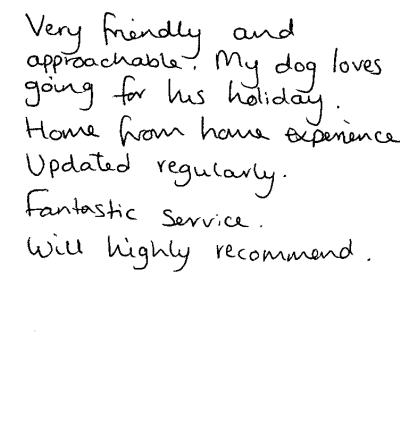 Very friendly and
approachable. My dog loves
going for his holiday.
Home from home experience
Updated regularly.
Fantastic service.
Will highly recommend.